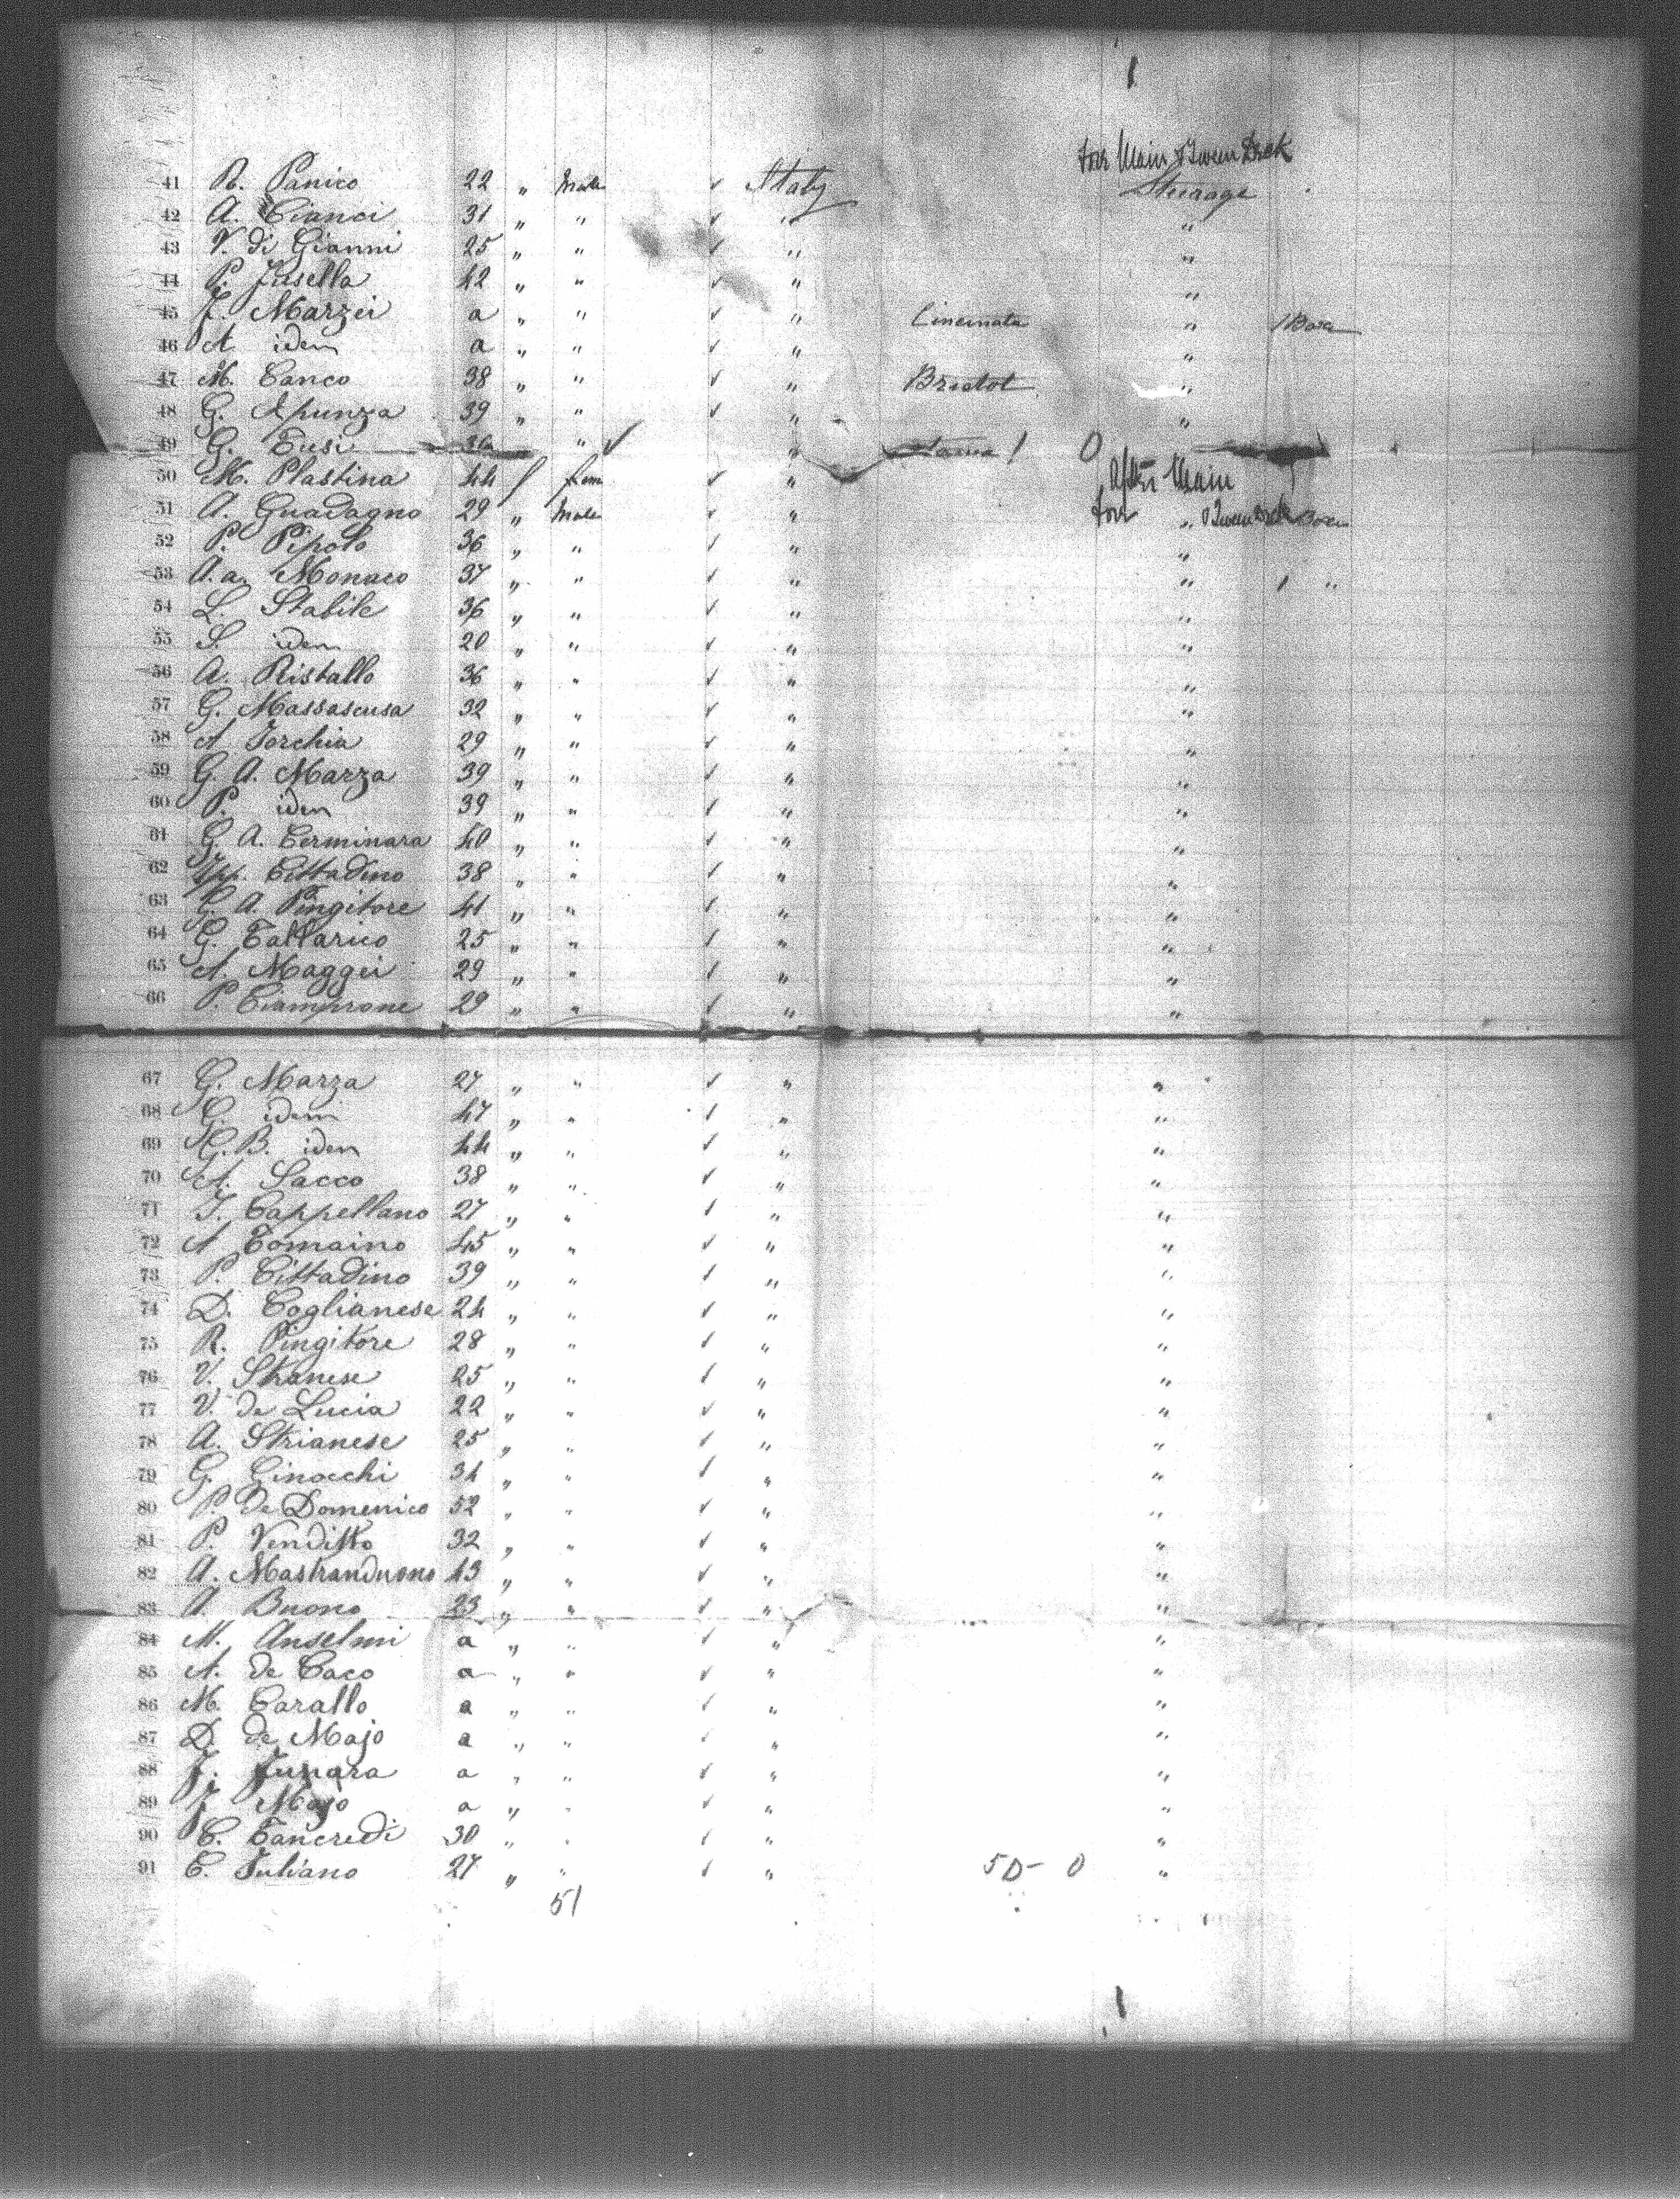 Forr Main & Tween Deck
41 R. Panico 22 " Male ✓ Italy Steerage
42 A. Cianci 31 " " ✓ " "
43 V. di Gianni 25 " " ✓ " "
44 P. Fusella 42 " " ✓ " "
45 F. Marzei a " " ✓ " Cincinata " 1 Box
46 A idem a " " ✓ " "
47 M. Canco 38 " " ✓ " Bristol "
48 G. Spunza 39 " " ✓ " "
49 G. Tusi " ✓ " 0
50 M. Plastina 44 / fem ✓ " After Main
51 A. Guadagno 29 " Male ✓ " Forr " Tween Deck Box
52 P. Pipolo 36 " " ✓ " "
53 A. a. Monaco 37 " " ✓ " " 1 "
54 L. Stabile 36 " " ✓ " "
55 S. idem 20 " " ✓ " "
56 A. Ristallo 36 " " ✓ " "
57 G. Massascusa 32 " " ✓ " "
58 A Torchia 29 " " ✓ " "
59 G. A. Marza 39 " " ✓ " "
60 P. idem 39 " " ✓ " "
61 G. A. Cerminara 40 " " ✓ " "
62 Gpp. Cittadino 38 " " ✓ " "
63 G. A. Pingitore 41 " " ✓ " "
64 G. Tallarico 25 " " ✓ " "
65 A. Maggei 29 " " ✓ " "
66 P. Ciamprone 29 " " ✓ " "
67 G. Marza 27 " " ✓ " "
68 G. idem 47 " " ✓ " "
69 G. B. idem 44 " " ✓ " "
70 A. Sacco 38 " " ✓ " "
71 T. Cappellano 27 " " ✓ " "
72 A Tomaino 45 " " ✓ " "
73 P. Cittadino 39 " " ✓ " "
74 D. Coglianese 24 " " ✓ " "
75 R. Pingitore 28 " " ✓ " "
76 V. Stranese 25 " " ✓ " "
77 V. de Lucia 22 " " ✓ " "
78 A. Strianese 25 " " ✓ " "
79 G. Ginocchi 34 " " ✓ " "
80 P. de Domenico 52 " " ✓ " "
81 P. Venditto 32 " " ✓ " "
82 A. Mastranduono 43 " " ✓ " "
83 A. Buono 23 " " ✓ " "
84 M. Anselmi a " " ✓ " "
85 A. de Caco a " " ✓ " "
86 M. Carallo a " " ✓ " "
87 D. de Majo a " " ✓ " "
88 F. Funara a " " ✓ " "
89 F Majo a " " ✓ " "
90 C. Tancredi 30 " " ✓ " "
91 C. Juliano 27 " " ✓ " 50- 0 "
51